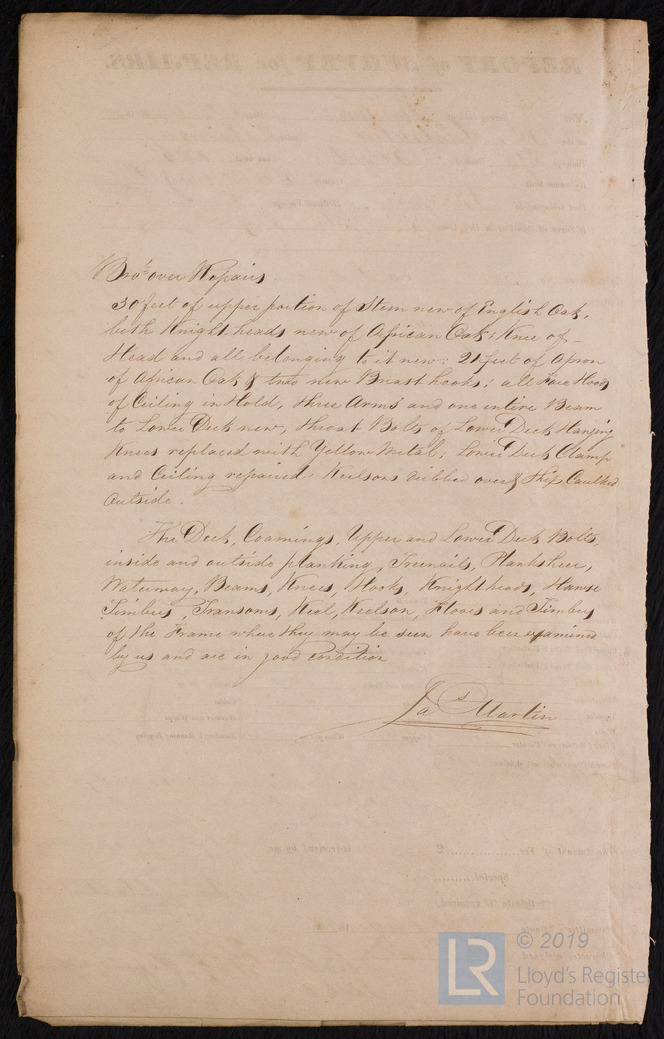 Bro.t over Repairs
30 feet of upper portion of Stem new of English Oak,
both Knight heads new of African Oak; Knee of
Head and all belonging to it new: 21 feet of Apron
of African Oak & two new Breast hooks; all Face Hood
of Ceiling in Hold, three Arms and one entire Beam
to Lower Deck new, throat Bolts of Lower Deck Hanging
Knees replaced with Yellow Metal; Lower Deck Clamp
and Ceiling repaired. Keelsons over & Ship Caulked
Outside.
The Deck, Coamings, Upper and Lower Deck Bolts,
inside and outside planking, Treenails, Planksheer,
Waterway, Beams, Knees, Hooks, Knightheads, Hawse
Timbers, Transoms, Keel, Keelson, Floors and Timbers
of the Frame where they may be seen have been examined
by us and are in good Condition
Jas Martin
REPORT of SURVEY for REPAIRS.
LR
© 2019
Lloyd's Register
Foundation